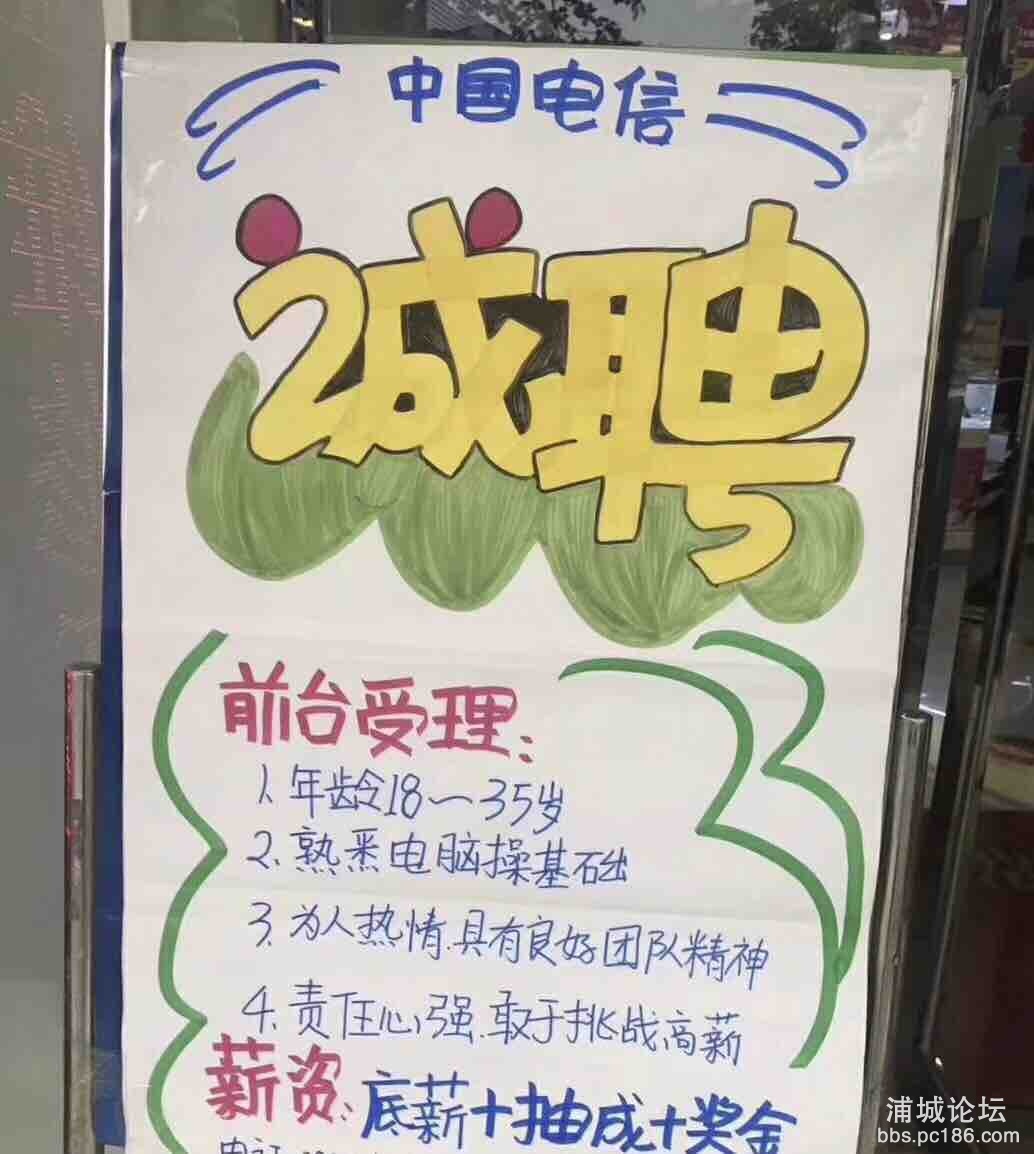 中国电信
诚聘
前台受理:
1.年龄18一35岁
2.熟悉电脑操基础
3.为人热情.具有良好团队精神
4.责任心强.敢于挑战高薪
薪资:底薪+抽成+奖金
浦城论坛
bbs.pc186.com